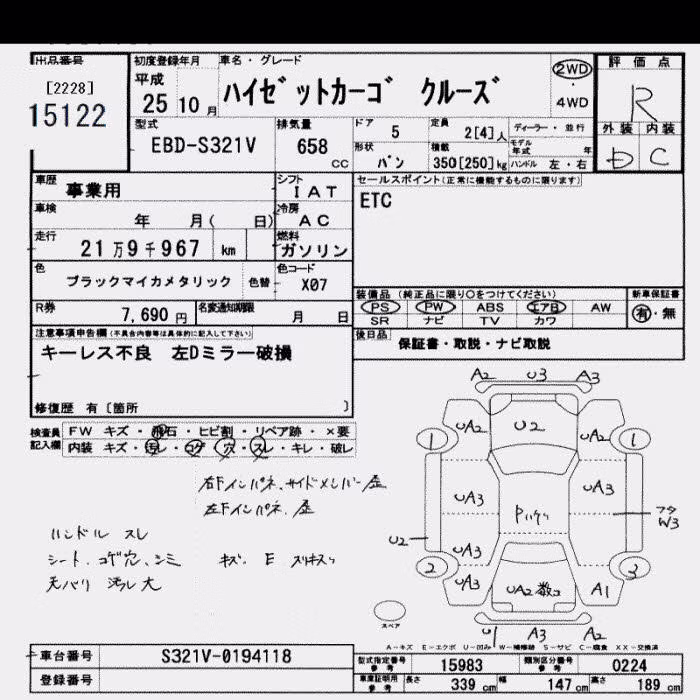 出品番号
[2228]
15122
初度登録年月
平成
25 10 月
車名・グレード
ハイゼットカーゴ クルーズ
2WD
4WD
評価点
R
外装 内装
D C
型式
EBD-S321V
排気量
658 cc
ドア
5
定員
2[4]人
ディーラー・並行
モデル年式 年
形状
バン
積載
350[250]kg
ハンドル 左・右
車歴
事業用
シフト
IAT
セールスポイント(正常に機能するものに限ります)
ETC
車検
年 月( 日)
冷房
AC
走行
21万9千967 km
燃料
ガソリン
色
ブラックマイカメタリック
色替
色コード
X07
装備品 (純正品に限り○をつけてください)
PS PW ABS エアB AW
SR ナビ TV カワ
新車保証書
有・無
R券
7,690円
名変通知期限
月 日
後日品
保証書・取説・ナビ取説
注意事項申告欄(不具合内容等は具体的に記入して下さい)
キーレス不良 左Dミラー破損
修復歴 有 [箇所 ]
検査員記入欄
FW キズ・飛石・ヒビ割・リペア跡・×要
内装 キズ・汚レ・コゲ・穴・スレ・キレ・破レ
右Fインパネ、サイドメンバー歪
左Fインパネ、歪
ハンドル スレ
シート、コゲ穴、シミ
天バリ 汚レ大
キズ、E スリキズ
A2 U3 A3
UA2 U2 UA2
1 1
UA3 UA3
U2
フタ
W3
UA3
2 3
UA3 UA2 A1
スペア
U1 A3 A2
A-キズ E-エクボ U-凹み W-補修跡 S-サビ C-腐食 XX-交換済
車台番号
S321V-0194118
登録番号
型式指定番号
参考
15983
類別区分番号
参考
0224
車庫証明用
参考
長さ 339 cm
幅 147 cm
高さ 189 cm